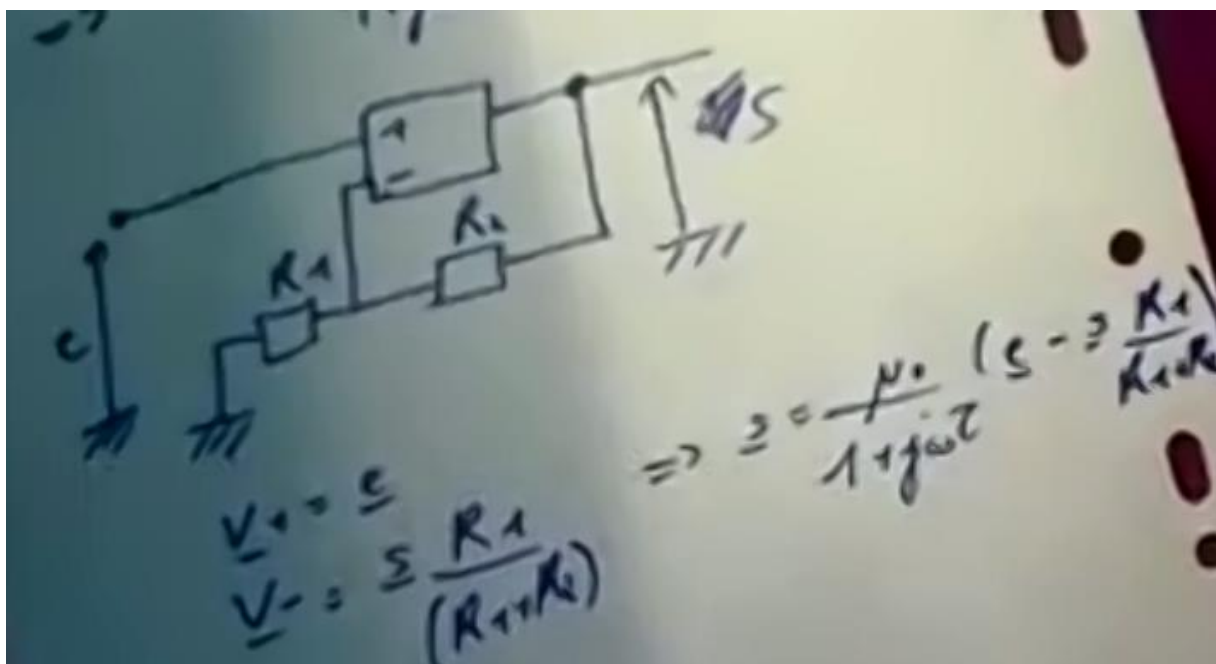 S
+
-
R2
R1
e
V+ = e
V- = s R1/(R1+R2)
=> s = μ0/(1+jωτ) (e - s R1/(R1+R2))